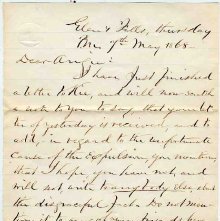 Glen's Falls, Thursday
7th May 1868
Dear Annie:
I have just finished
a letter to Kie, and will now
a note to you to say, that your letter
of yesterday is received, and to
add, in regard to the unfortunate
cause of the expulsion, you mention,
that I hope, you have not, and
will not write to anybody else, about
the disgraceful Do not men-
tion it to